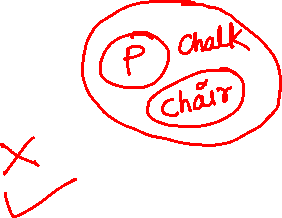 P Chalk
Chair